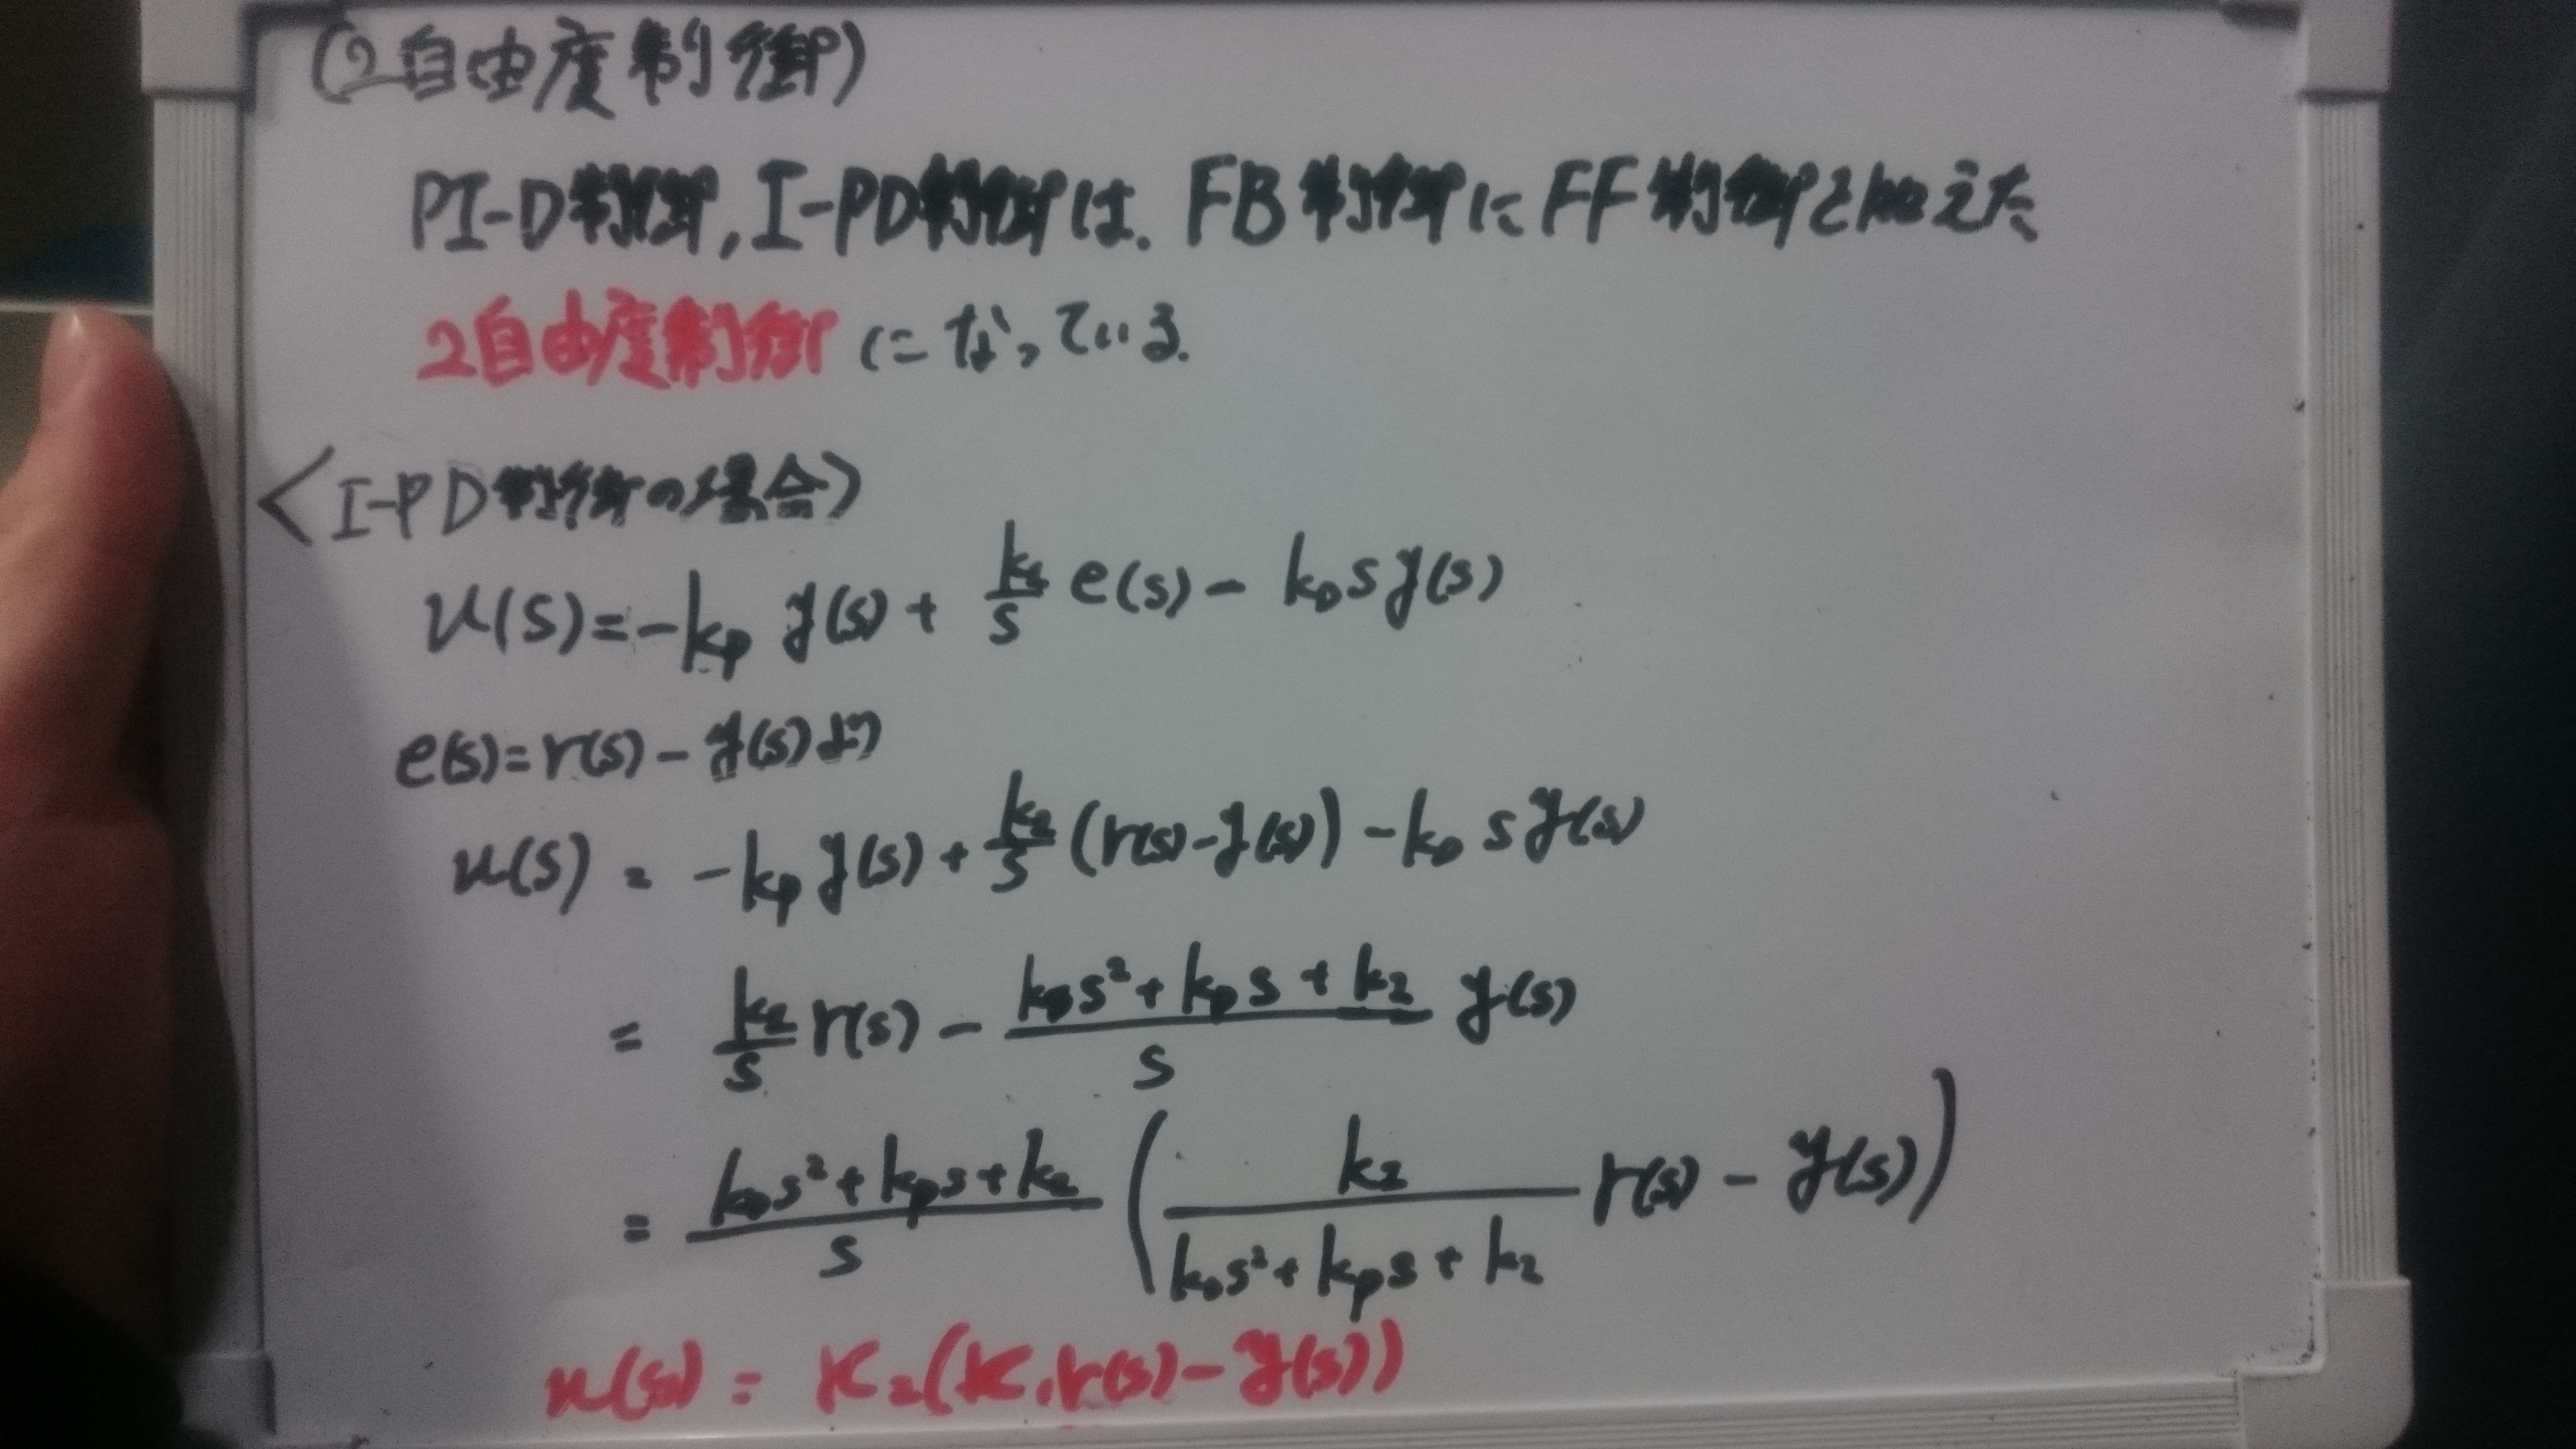 (2自由度制御)
PI-D制御,I-PD制御は. FB制御にFF制御を加えた
2自由度制御になっている.
<I-PD制御の場合>
u(s)=-kp y(s)+ kI/s e(s)- kD s y(s)
e(s)=r(s)-y(s)より
u(s) = -kp y(s)+ kI/s (r(s)-y(s)) -kD s y(s)
= kI/s r(s) - (kD s²+kp s+kI)/s y(s)
= (kD s²+kp s+kI)/s ( kI/(kD s²+kp s+kI) r(s) - y(s) )
u(s) = K₂(K₁r(s)-y(s))